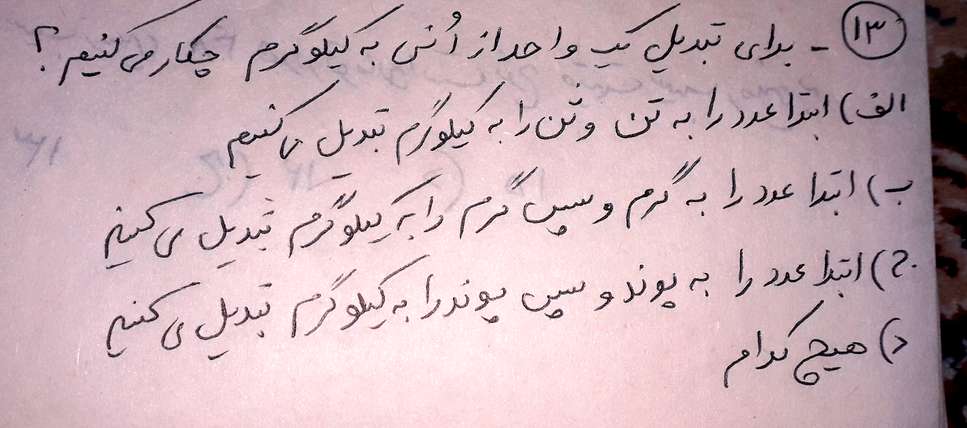 ۱۳ - برای تبدیل یک واحد از اُنس به کیلوگرم چکار می کنیم؟
الف) ابتدا عدد را به تن و تن را به کیلوگرم تبدیل می کنیم
ب) ابتدا عدد را به گرم و سپس گرم را به کیلوگرم تبدیل می کنیم
ج) ابتدا عدد را به پوند و سپس پوند را به کیلوگرم تبدیل می کنیم
د) هیچ کدام